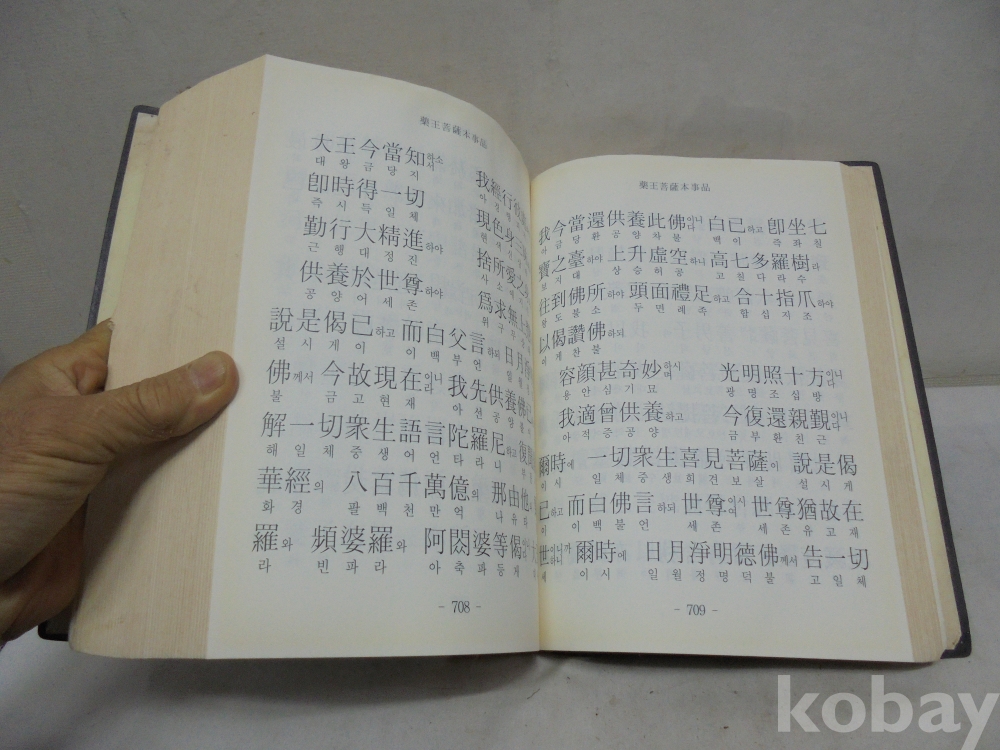 藥王菩薩本事品
大王今當知하소서
대왕금당지
我經行
아경행
卽時得一切
즉시득일체
現色身三
현색신삼
勤行大精進하야
근행대정진
捨所愛之
사소애지
供養於世尊하야
공양어세존
爲求無上
위구무상
說是偈已하고 而白父言하되 日月
설시게이 이백부언 일월
佛께서 今故現在이니라 我先供養佛
불 금고현재 아선공양불
解一切衆生語言陀羅尼하고 復
해일체중생어언타라니 부
華經의 八百千萬億의 那由他
화경 팔백천만억 나유타
羅와 頻婆羅와 阿閦婆等偈
라 빈파라 아축파등게
- 708 -
藥王菩薩本事品
我今當還供養此佛이니 白已하고 卽坐七
아금당환공양차불 백이 즉좌칠
寶之臺하야 上升虛空하니 高七多羅樹라
보지대 상승허공 고칠다라수
往到佛所하야 頭面禮足하고 合十指爪하야
왕도불소 두면례족 합십지조
以偈讚佛하되
이게찬불
容顔甚奇妙하시며 光明照十方이라
용안심기묘 광명조십방
我適曾供養하고 今復還親覲이니라
아적증공양 금부환친근
爾時에 一切衆生喜見菩薩이 說是偈
이시 일체중생희견보살 설시게
已하고 而白佛言하되 世尊이시여 世尊猶故在
이 이백불언 세존 세존유고재
世이니까 爾時에 日月淨明德佛께서 告一切
세 이시 일월정명덕불 고일체
- 709 -
kobay